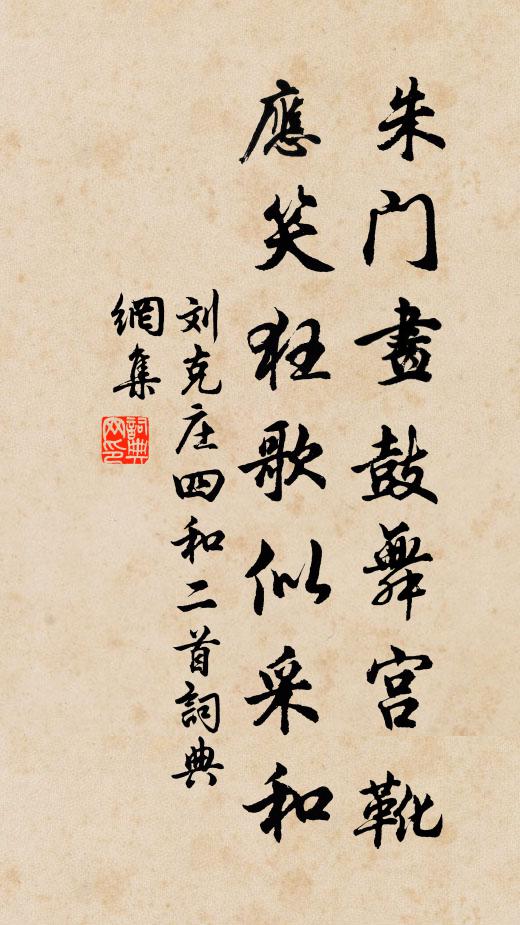 朱门畫鼓舞宫靴
應笑狂歌似采和
刘克庄四和二首詞典
網集
詞典
网印